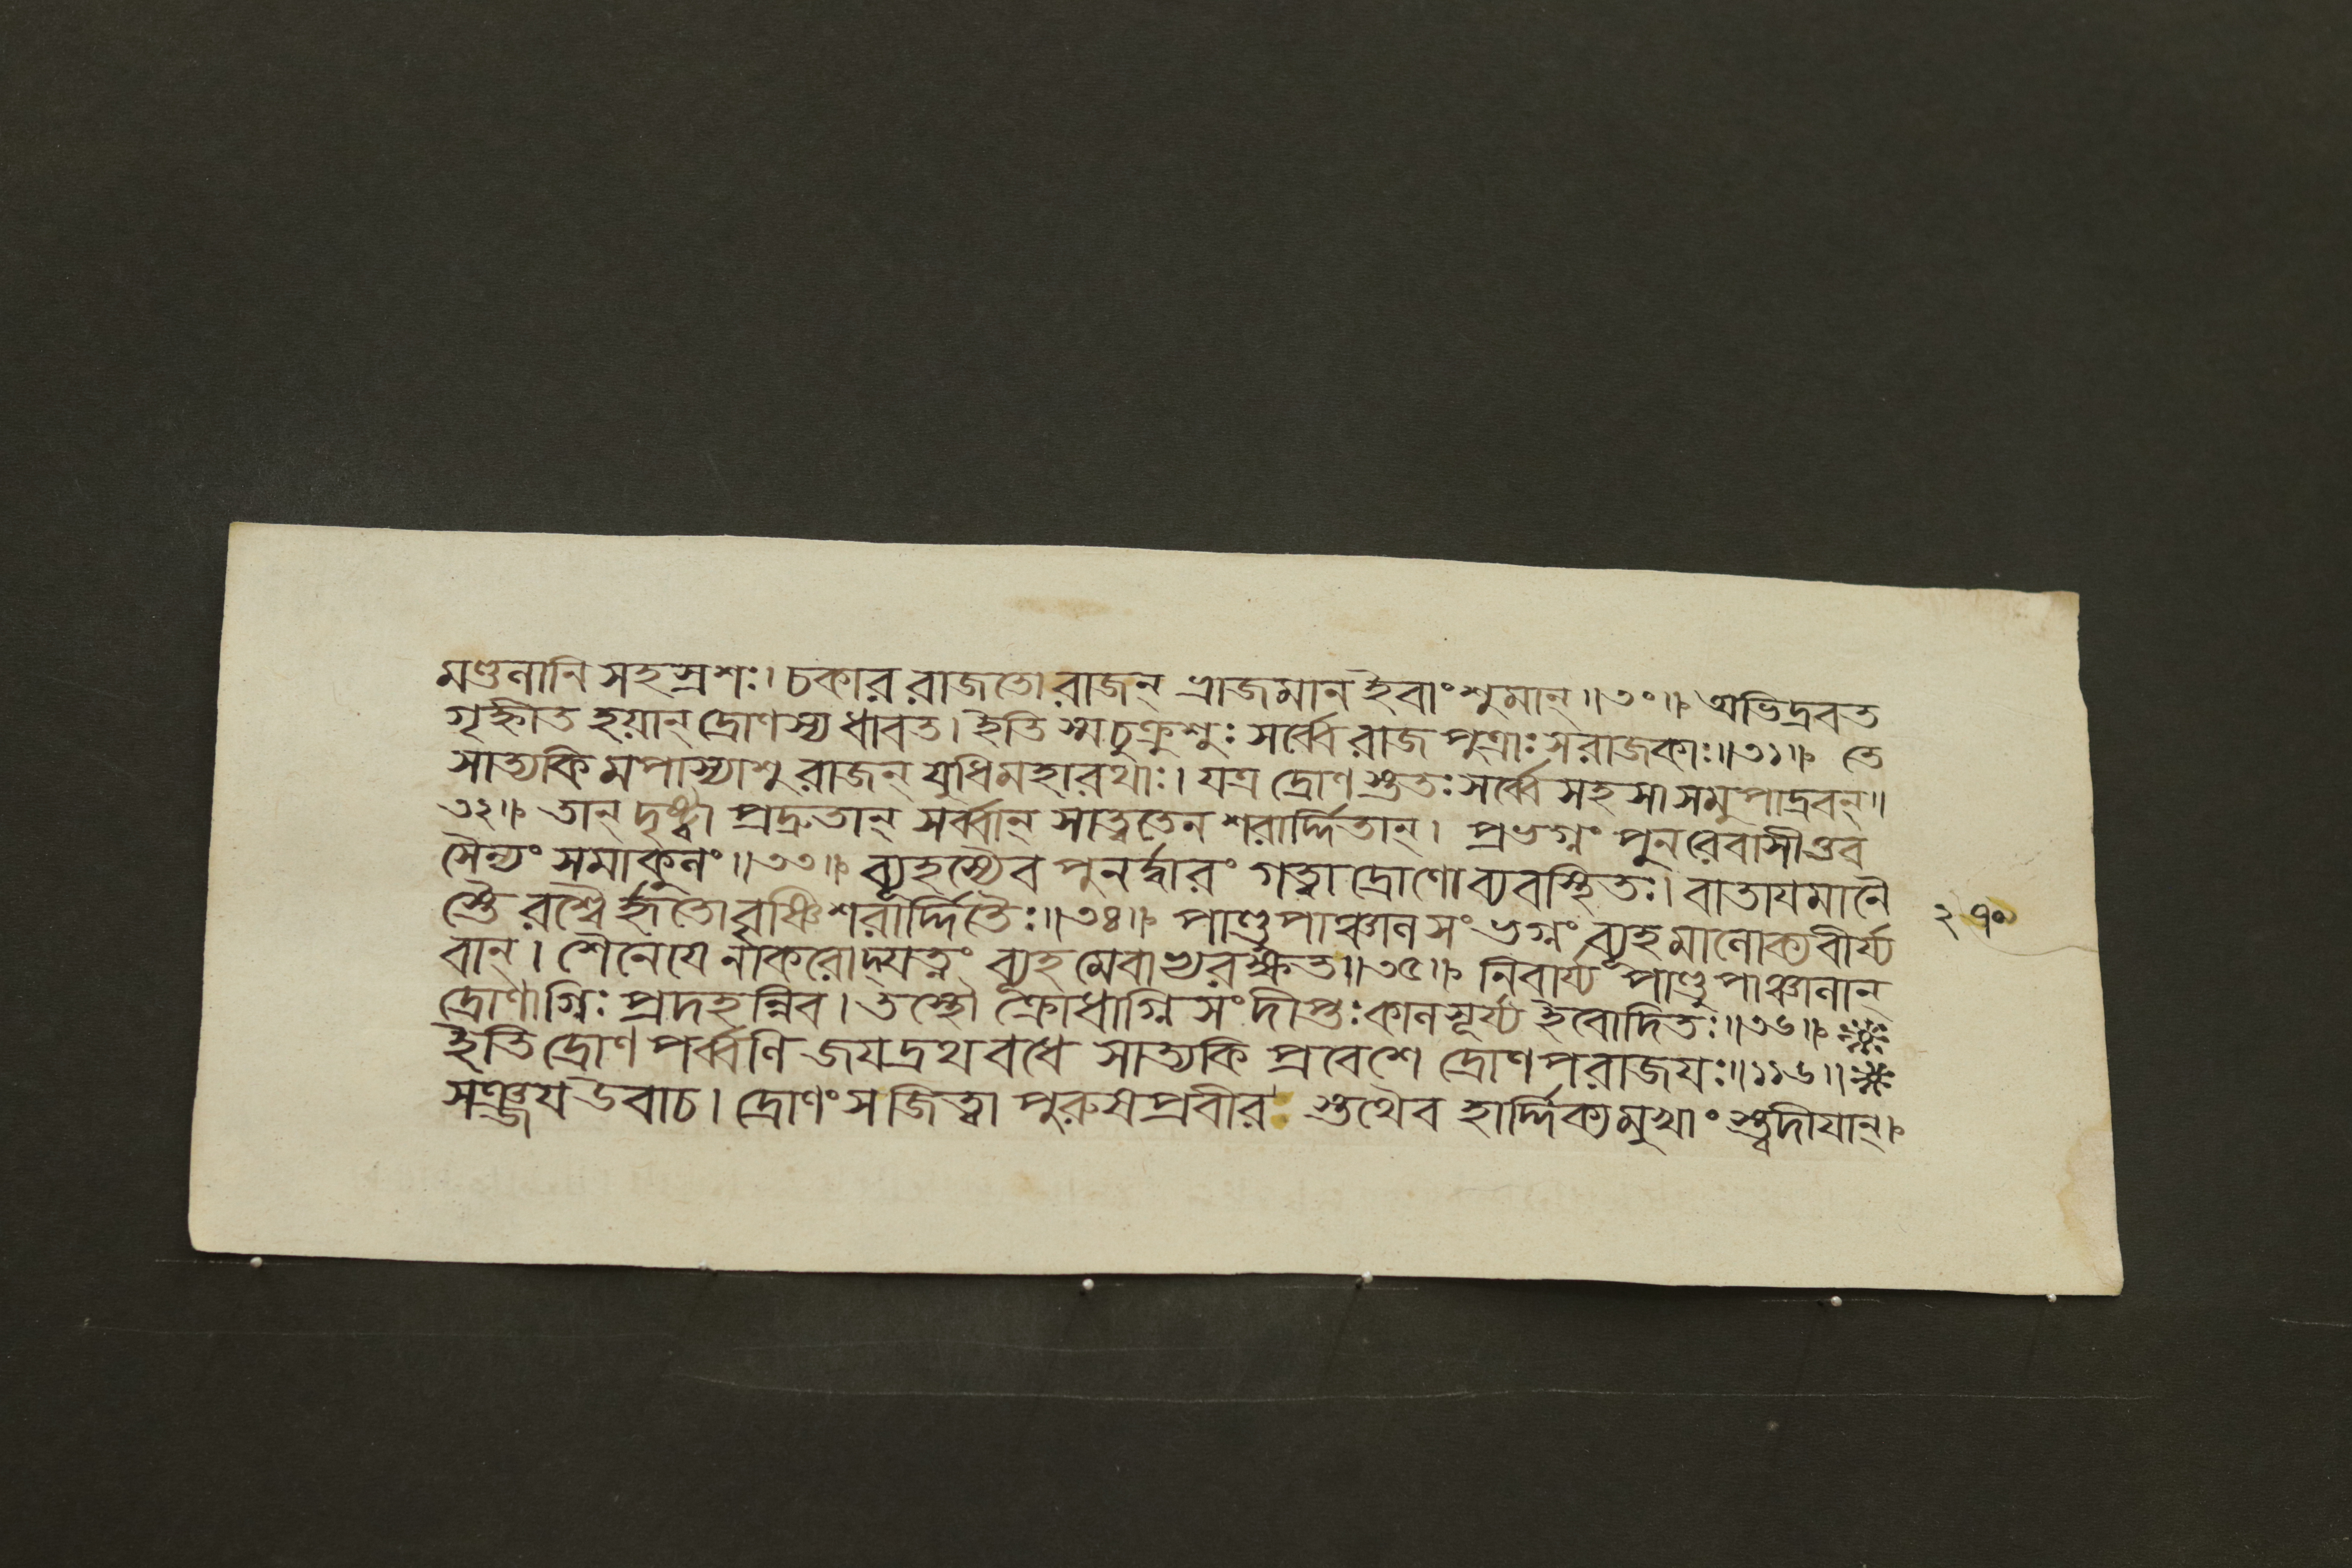 মণ্ডলানি সহস্রশঃ। চকার রাজতো রাজন্ ভ্রাজমান ইবাংশুমান্॥৩০॥ অভিদ্রবত
গৃহ্নীত হয়ান্ দ্রোণস্য ধাবত। ইতি স্ম চুক্রুশুঃ সর্ব্বে রাজপুত্রাঃ সরাজকাঃ॥৩১॥ তে
সাত্যকিমপাস্যাশু রাজন্ যুধি মহারথাঃ। যত্র দ্রোণস্ততঃ সর্ব্বে সহসা সমুপাদ্রবন্॥
৩২॥ তান্ দৃষ্ট্বা প্রদ্রুতান্ সর্ব্বান্ সাত্বতেন শরার্দ্দিতান্। প্রভগ্নং পুনরেবাসীত্তব
সৈন্যং সমাকুলং॥৩৩॥ ব্যূহস্যৈব পুনর্দ্বারং গত্বা দ্রোণো ব্যবস্থিতঃ। বাতাযমানৈ
স্তৈরশ্বৈর্হৃতো বৃষ্ণিশরার্দ্দিতৈঃ॥৩৪॥ পাণ্ডুপাঞ্চালসংভগ্নং ব্যূহমালোক্য বীর্য্য
বান্। শৈনেযে নাকরোদ্যত্নং ব্যূহমেবাভ্যরক্ষত॥৩৫॥ নিবার্য্য পাণ্ডুপাঞ্চালান্
দ্রোণাগ্নিঃ প্রদহন্নিব। তস্থৌ ক্রোধাগ্নিসংদীপ্তঃ কালসূর্য্য ইবোদিতঃ॥৩৬॥
ইতি দ্রোণপর্ব্বণি জযদ্রথবধে সাত্যকিপ্রবেশে দ্রোণপরাজযঃ॥১১৬॥
সঞ্জয উবাচ। দ্রোণং স জিত্বা পুরুষপ্রবীর স্তথৈব হার্দ্দিক্যমুখাংস্ত্বদীযান্।
২৭০